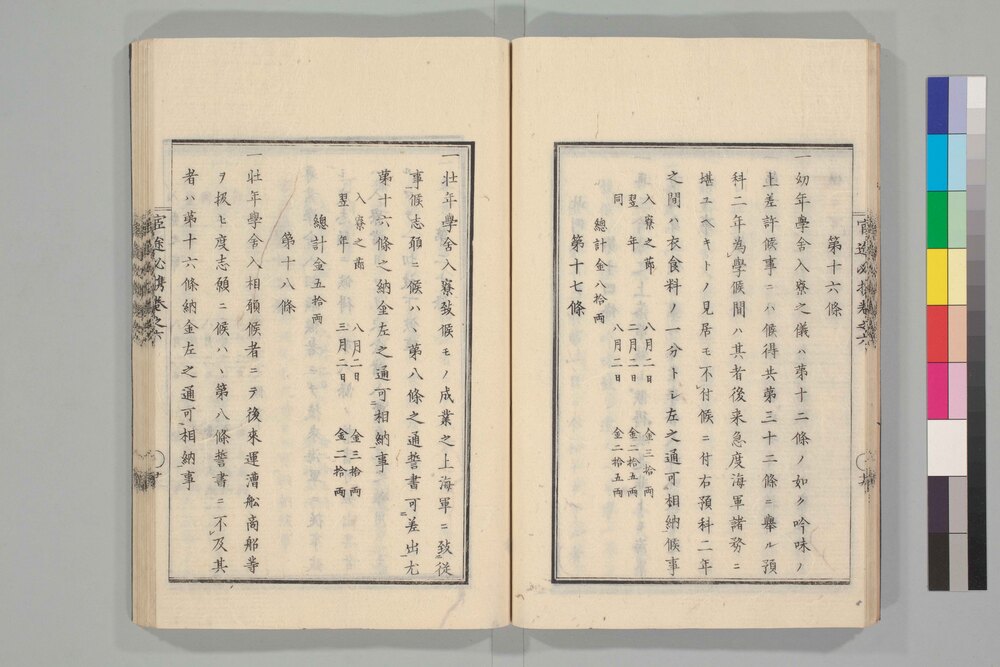 第十六條
一幼年學舍入寮之儀ハ第十二條ノ如ク吟味ノ
上差許候事ニハ候得共第三十二條ニ舉ル預
科二年為學候間ハ其者後来急度海軍諸務ニ
堪ユヘキトノ見居モ不付候ニ付右預科二年
之間ハ衣食料ノ一分トレ左之通可相納候事
入寮之節 八月二日 金三拾兩
翌年 二月二日 金二拾五兩
同 八月二日 金二拾五兩
總計金八拾兩
第十七條
官途必携卷之六
一壮年學舍入寮致候モノ成業之上海軍ニ致従
事候志願ニ候ハヽ第八條之通誓書可差出尤
第十六條之納金左之通可相納事
入寮之節 八月二日 金三拾兩
翌年 三月二日 金二拾兩
總計金五拾兩
第十八條
一壮年學舍入相願候者ニテ後來運漕舩商船等
ヲ扱ヒ度志願ニ候ハヽ第八條誓書ニ不及其
者ハ第十六條納金左之通可相納事
官途必携卷之六